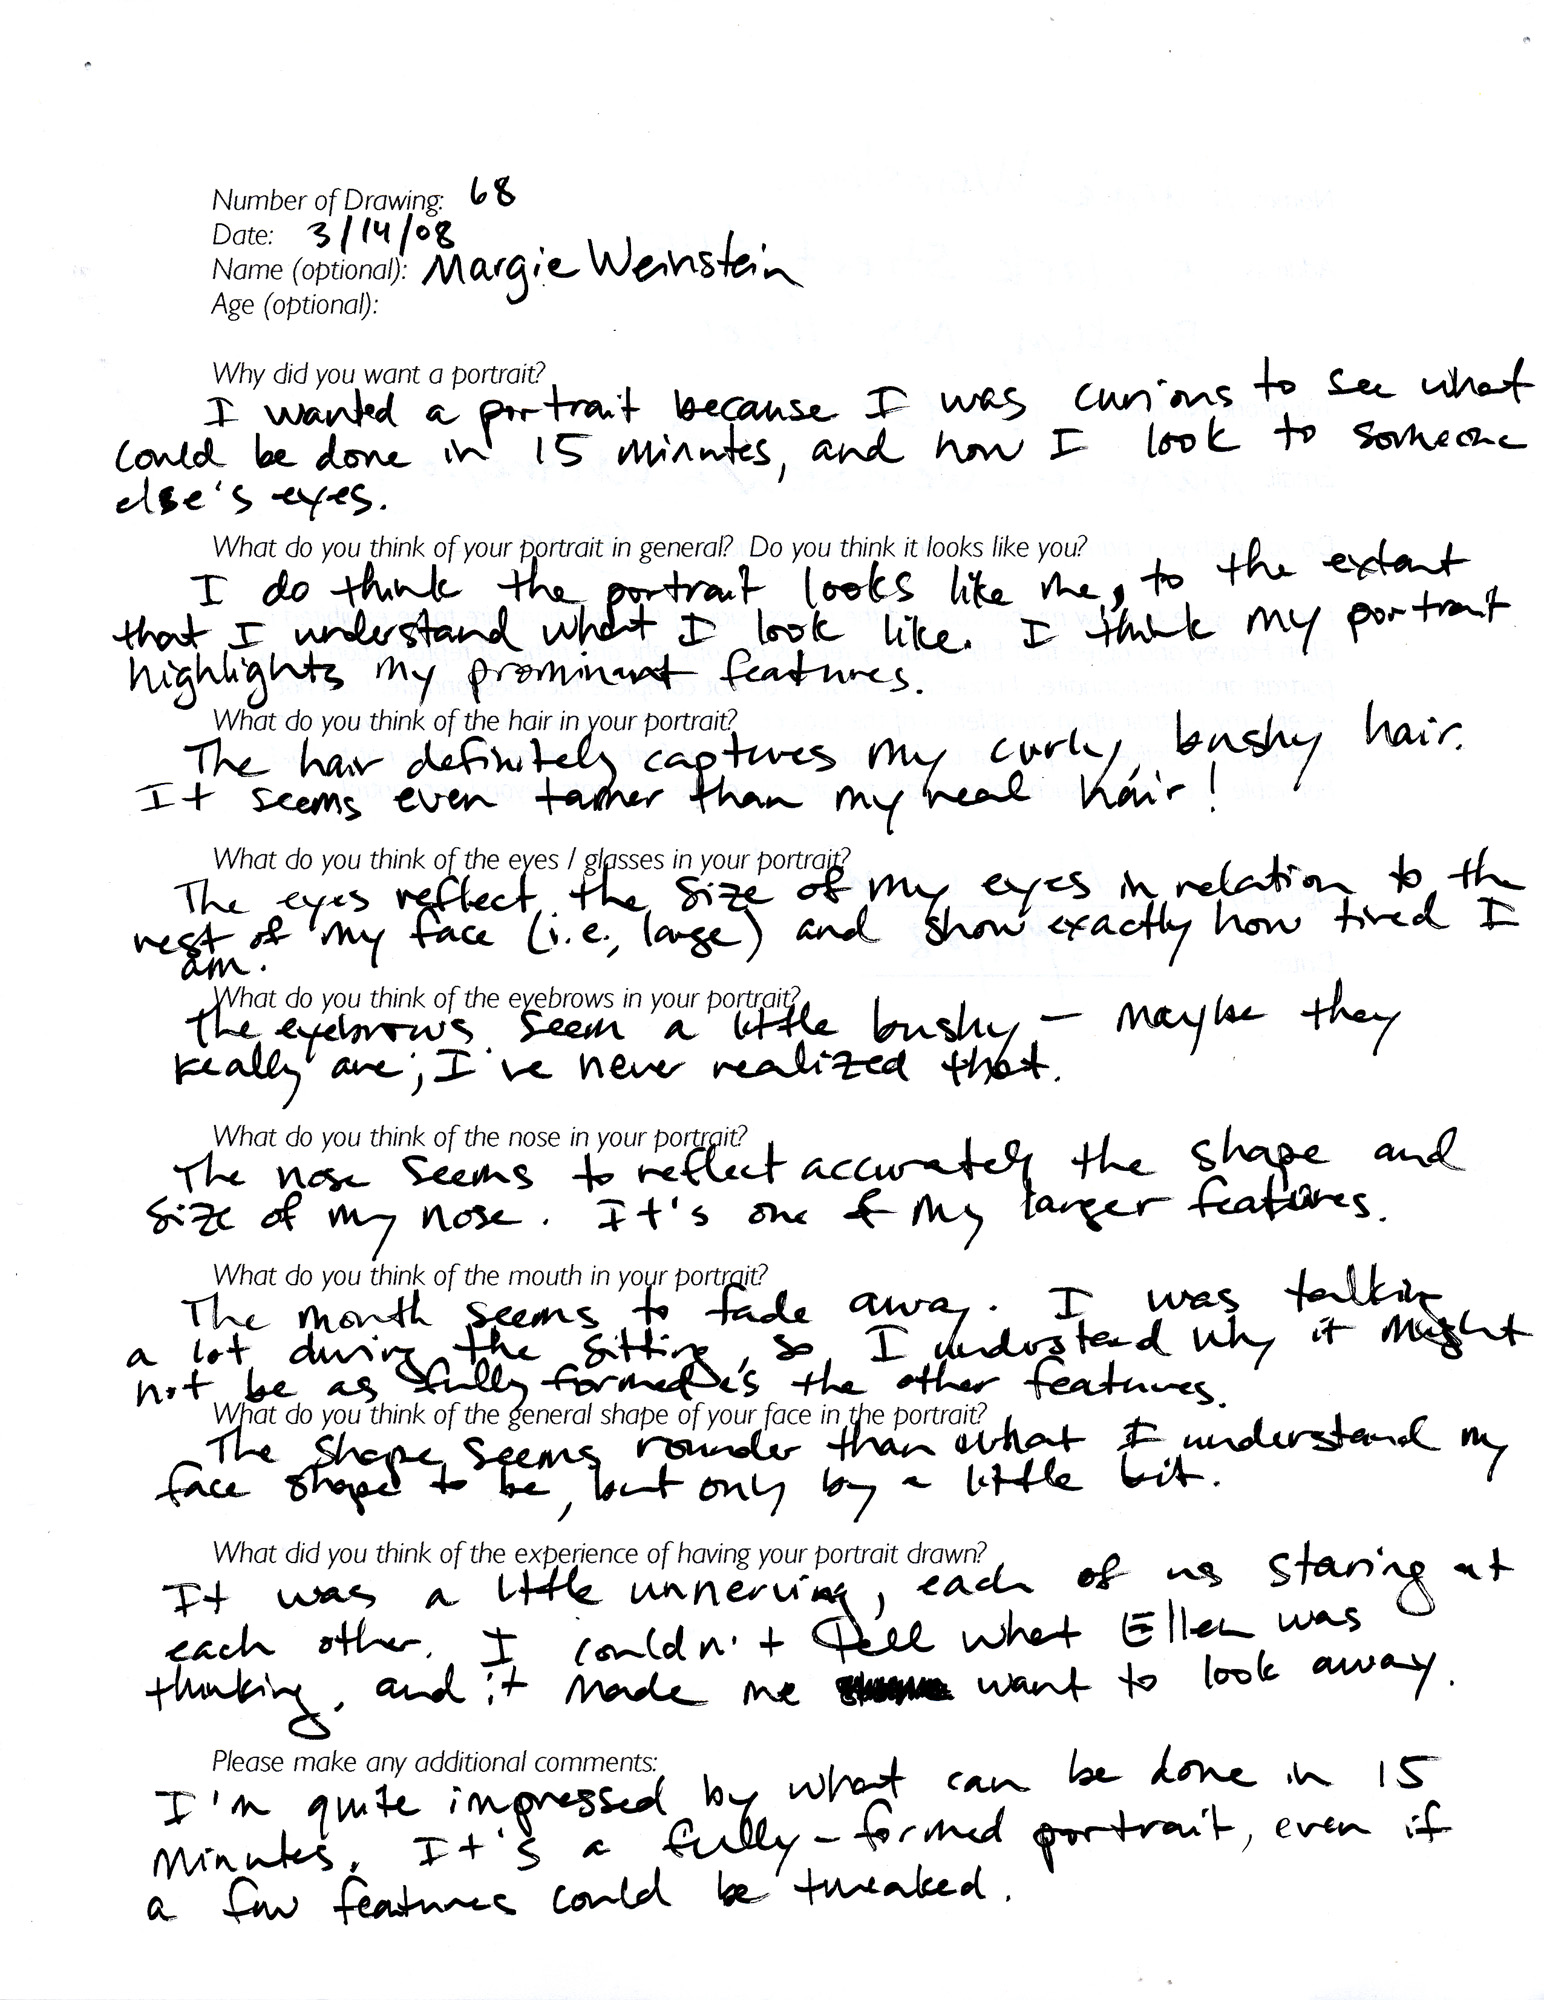 Number of Drawing: 68
Date: 3/14/08
Name (optional): Margie Weinstein
Age (optional):
Why did you want a portrait?
I wanted a portrait because I was curious to see what
could be done in 15 minutes, and how I look to someone
else's eyes.
What do you think of your portrait in general? Do you think it looks like you?
I do think the portrait looks like me, to the extant
that I understand what I look like. I think my portrait
highlights my prominant features.
What do you think of the hair in your portrait?
The hair definitely captures my curly, bushy hair.
It seems even tamer than my real hair!
What do you think of the eyes / glasses in your portrait?
The eyes reflect the size of my eyes in relation to the
rest of my face (i.e., large) and show exactly how tired I
am.
What do you think of the eyebrows in your portrait?
The eyebrows seem a little bushy – maybe they
really are; I've never realized that.
What do you think of the nose in your portrait?
The nose seems to reflect accurately the shape and
size of my nose. It's one of my larger features.
What do you think of the mouth in your portrait?
The mouth seems to fade away. I was talking
a lot during the sitting, so I understand why it might
not be as fully formed as the other features.
What do you think of the general shape of your face in the portrait?
The shape seems rounder than what I understand my
face shape to be, but only by a little bit.
What did you think of the experience of having your portrait drawn?
It was a little unnerving, each of us staring at
each other. I couldn't tell what Ellen was
thinking, and it made me want to look away.
Please make any additional comments:
I'm quite impressed by what can be done in 15
minutes. It's a fully-formed portrait, even if
a few features could be tweaked.